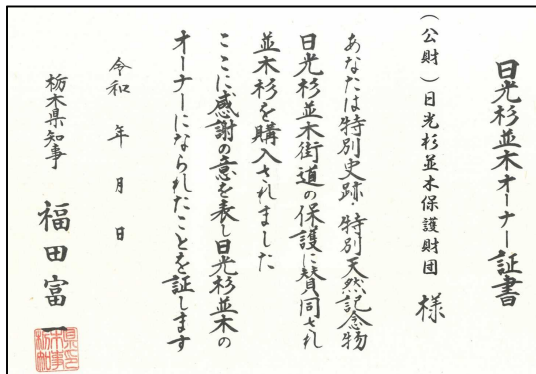 日光杉並木オーナー証書
（公財）日光杉並木保護財団 様
あなたは特別史跡・特別天然記念物
日光杉並木街道の保護に賛同され
並木杉を購入されました
ここに感謝の意を表し日光杉並木の
オーナーになられたことを証します
令和 年 月 日
栃木県知事 福田富一